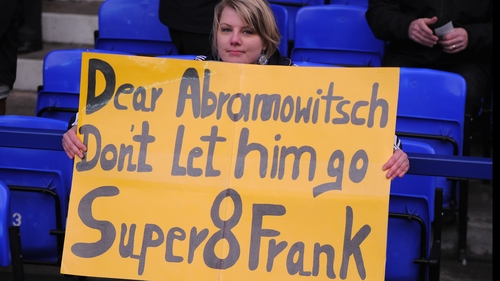 Dear Abramowitsch
Don't let him go
Super 8 Frank
3